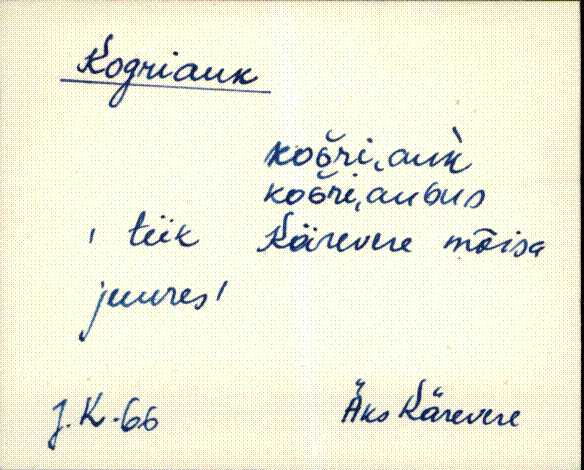 Kogriauk
koɢ̆ri‚auk̀
koɢ̆ri‚auɢus
' tiik Kärevere mõisa
juures'
J.K.-66 Äks Kärevere